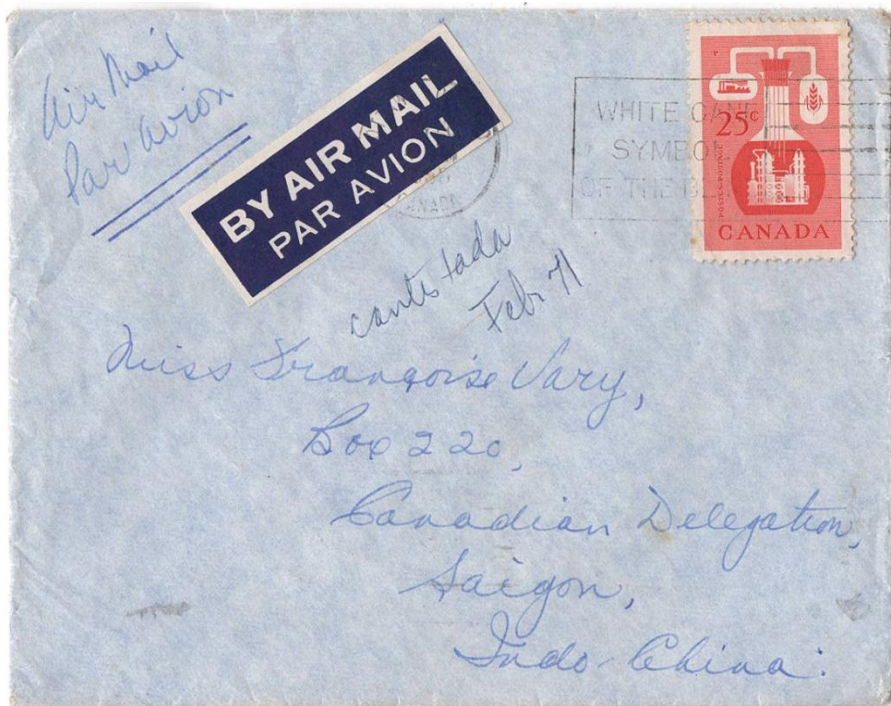 Air Mail
Par avion
BY AIR MAIL
PAR AVION
CANADA
WHITE CANE
SYMBOL
OF THE
25c
CANADA
contestada
Feb 71
Miss Françoise Vary,
Box 220,
Canadian Delegation,
Saigon,
Indo-China.